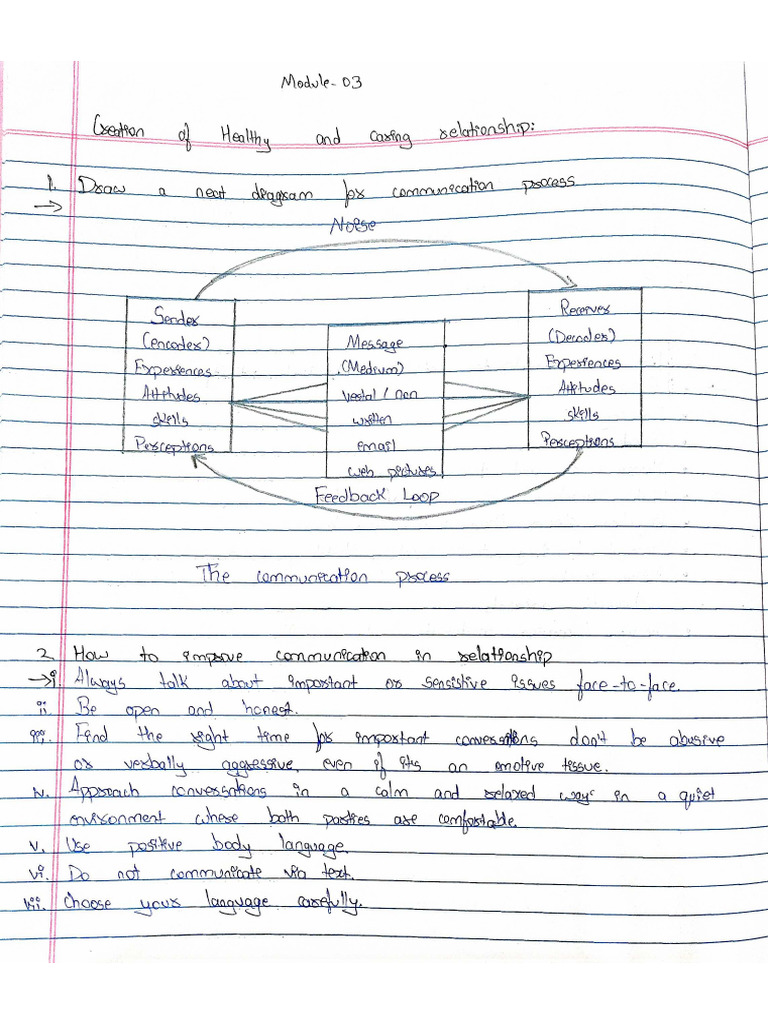 Module-03
Creation of Healthy and caring relationship:
1. Draw a neat diagram for communication process
→
Noise
Sender
(encoder)
Experiences
Attitudes
skills
Perceptions
Message
(Medium)
verbal / non
written
email
web pictures
Receiver
(Decoder)
Experiences
Attitudes
skills
Perceptions
Feedback Loop
The communication process
2. How to improve communication in relationship
→ i. Always talk about important or sensistive issues face-to-face.
ii. Be open and honest.
iii. Find the right time for important conversations don't be abusive
or verbally aggressive, even if its an emotive tissue.
iv. Approach conversations in a calm and relaxed ways in a quiet
environment where both parties are comfortable.
v. Use positive body language.
vi. Do not communicate via text.
vii. choose your language carefully.